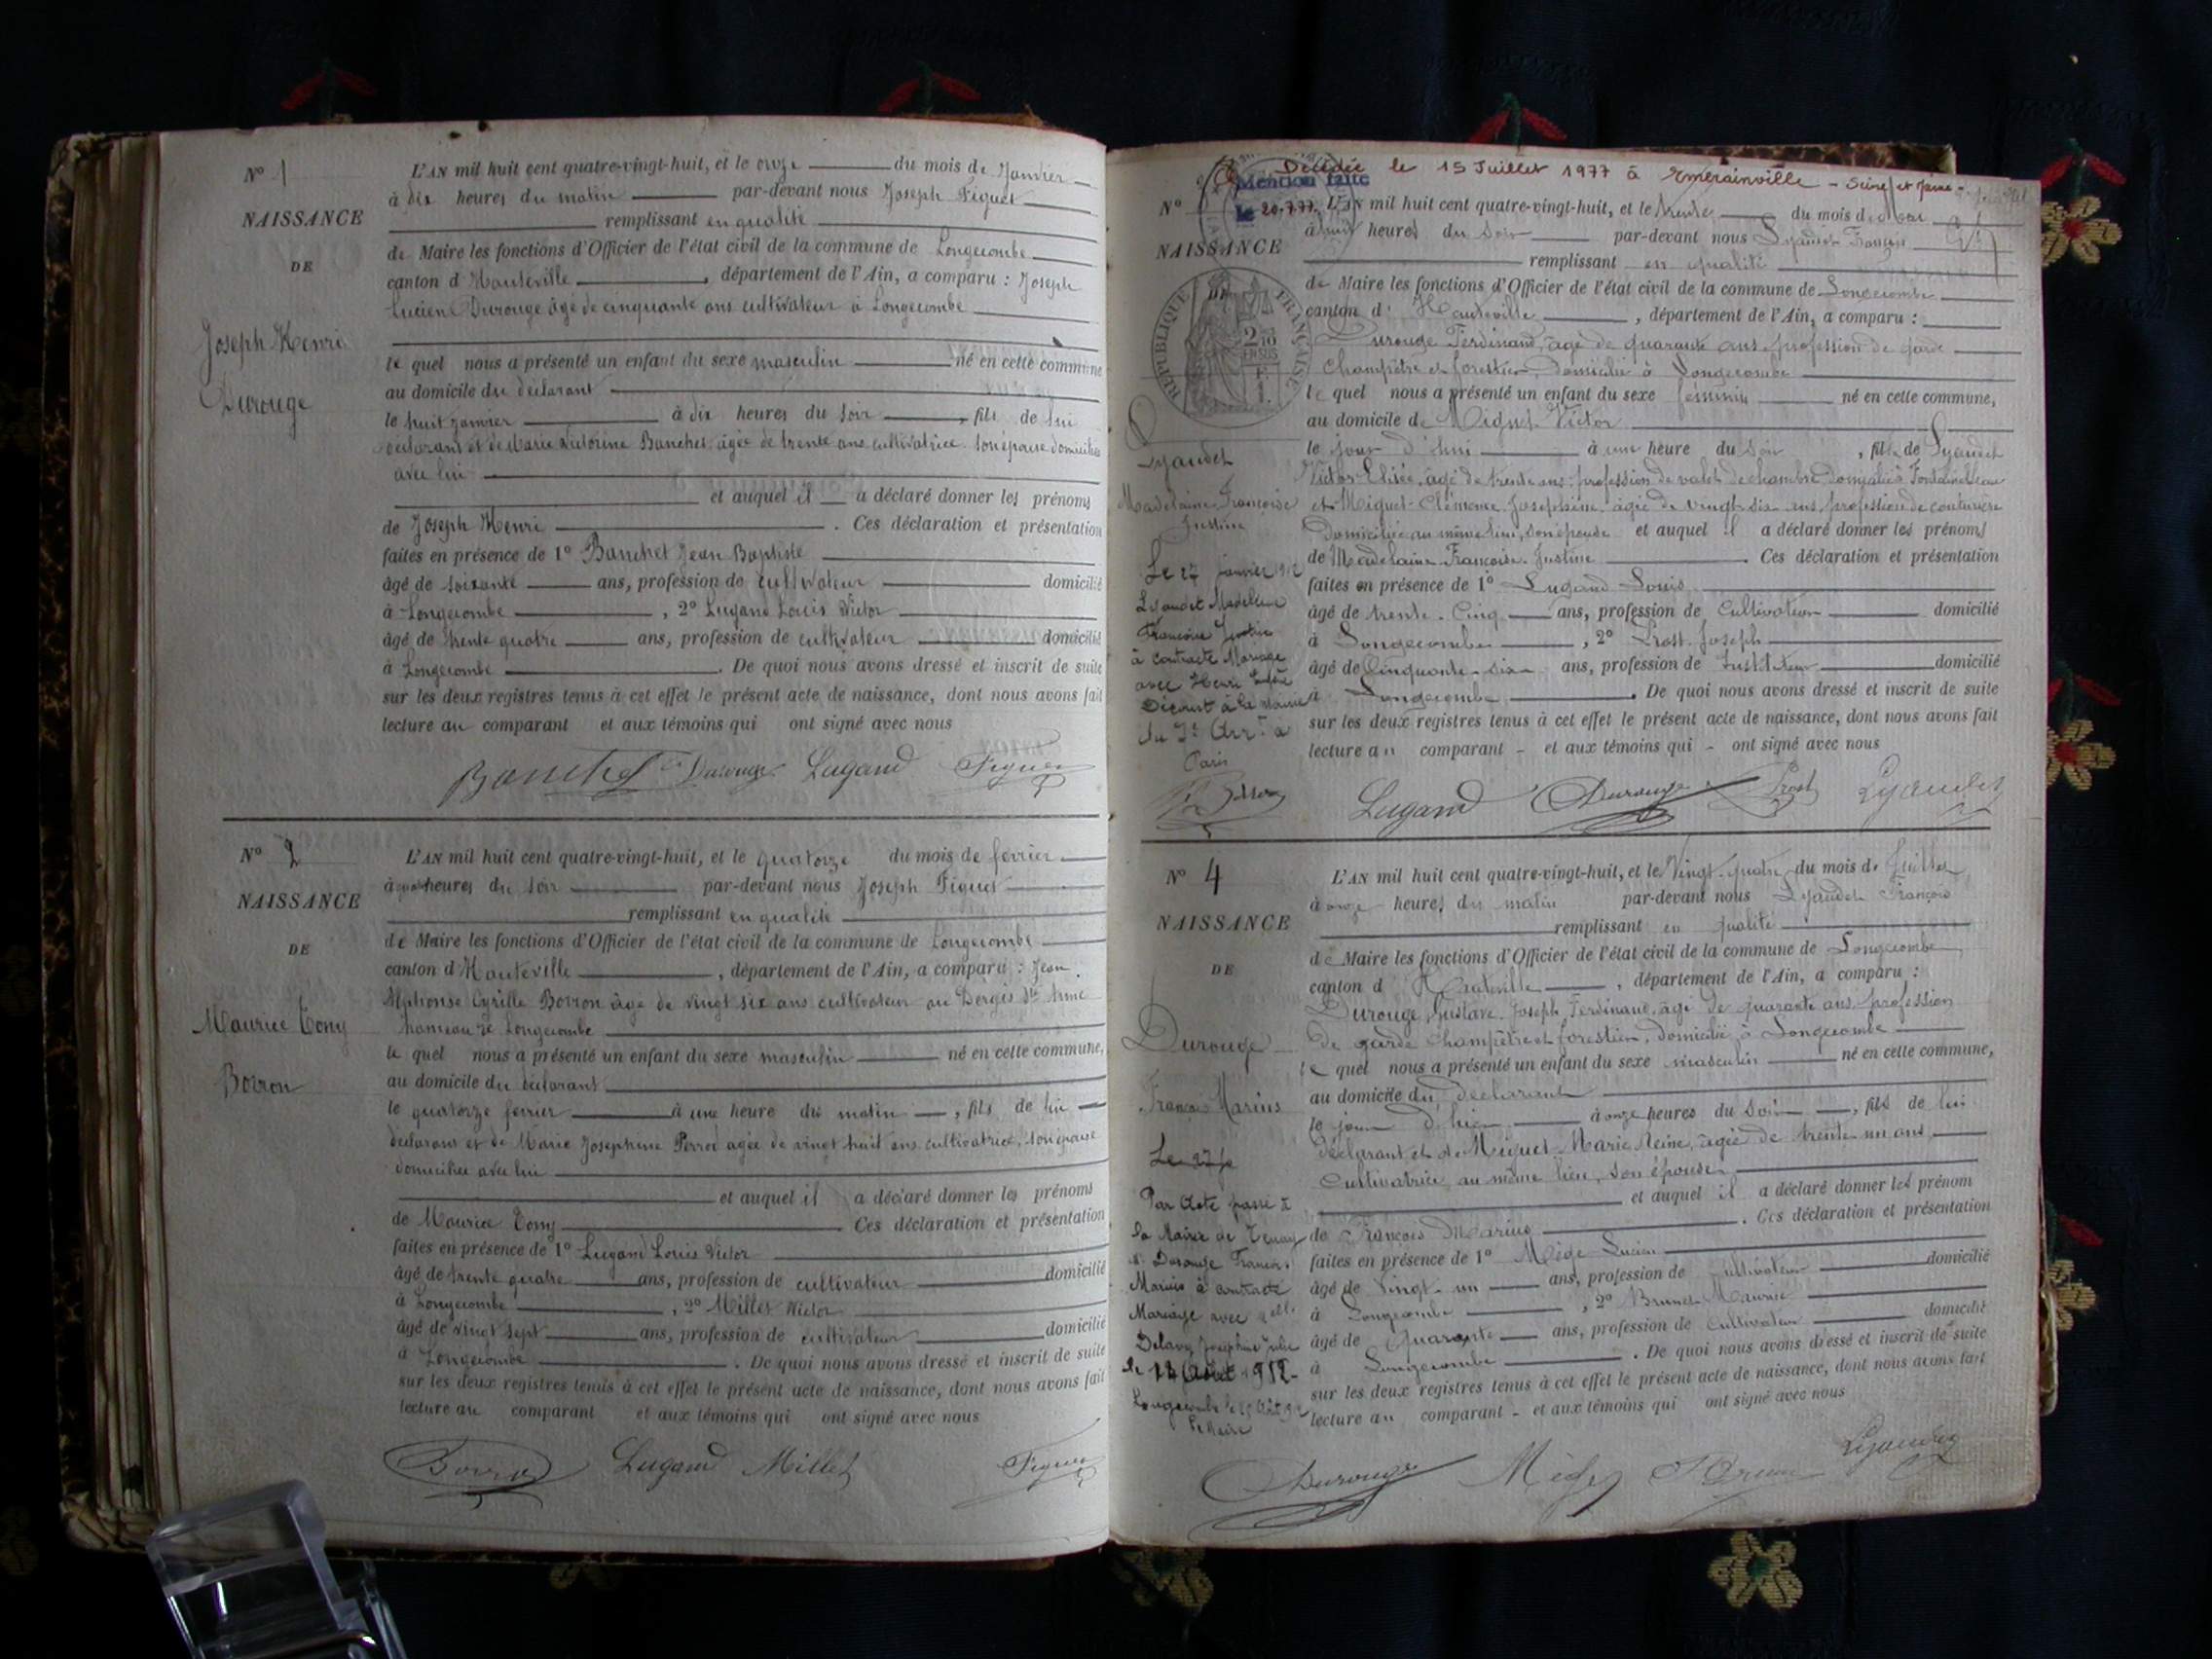 N° 1
NAISSANCE
DE
Joseph Henri
Durouge
L'AN mil huit cent quatre-vingt-huit, et le onze du mois de Janvier
à dix heures du matin par-devant nous Joseph Figuet
remplissant en qualité
de Maire les fonctions d'Officier de l'état civil de la commune de Longecombe
canton d'Hauteville, département de l'Ain, a comparu : Joseph
Lucien Durouge âgé de cinquante ans cultivateur à Longecombe
le quel nous a présenté un enfant du sexe masculin né en cette commune
au domicile du déclarant
le huit janvier à dix heures du soir, fils de lui
déclarant et de Marie Banchet âgée de trente ans cultivatrice son épouse domiciliée
avec lui
et auquel il a déclaré donner les prénoms
de Joseph Henri. Ces déclaration et présentation
faites en présence de 1° Banchet Jean Baptiste
âgé de soixante ans, profession de cultivateur domicilié
à Longecombe, 2° Lugand Louis Victor
âgé de trente quatre ans, profession de cultivateur domicilié
à Longecombe. De quoi nous avons dressé et inscrit de suite
sur les deux registres tenus à cet effet le présent acte de naissance, dont nous avons fait
lecture au comparant et aux témoins qui ont signé avec nous
Banchet Durouge Lugand Figuet
N° 2
NAISSANCE
DE
Maurice Tony
Borron
L'AN mil huit cent quatre-vingt-huit, et le quatorze du mois de février
à heures du soir par-devant nous Joseph Figuet
remplissant en qualité
de Maire les fonctions d'Officier de l'état civil de la commune de Longecombe
canton d'Hauteville, département de l'Ain, a comparu : Jean
Alphonse Cyrille Borron âgé de vingt six ans cultivateur au
hameau de Longecombe
le quel nous a présenté un enfant du sexe masculin né en cette commune,
au domicile du déclarant
le quatorze février à une heure du matin, fils de lui
déclarant et de Marie Josephine Perrod agée de vingt huit ans cultivatrice, son épouse
domiciliée avec lui
et auquel il a déclaré donner les prénoms
de Maurice Tony. Ces déclaration et présentation
faites en présence de 1° Lugand Louis Victor
âgé de trente quatre ans, profession de cultivateur domicilié
à Longecombe, 2° Millet Victor
âgé de vingt sept ans, profession de cultivateur domicilié
à Longecombe. De quoi nous avons dressé et inscrit de suite
sur les deux registres tenus à cet effet le présent acte de naissance, dont nous avons fait
lecture au comparant et aux témoins qui ont signé avec nous
Borron Lugand Millet Figuet
Décédée le 15 Juillet 1977 à Emerainville - Seine et Marne -
Mention faite
le 20.7.77.
N°
NAISSANCE
DE
RÉPUBLIQUE FRANÇAISE
Lyaudet
Madelaine Françoise
Justine
Le 27 janvier 1912
Lyaudet Madeleine
Françoise Justine
à contracté Mariage
avec Henri
à la Mairie
du 7e Arrt à
Paris
L'AN mil huit cent quatre-vingt-huit, et le trente du mois de Mai
à heures du soir par-devant nous Lyaudet François
remplissant en qualité
de Maire les fonctions d'Officier de l'état civil de la commune de Longecombe
canton d'Hauteville, département de l'Ain, a comparu :
Durouge Ferdinand, âgé de quarante ans, profession de garde
Champêtre et forestier, domicilié à Longecombe
le quel nous a présenté un enfant du sexe féminin né en cette commune,
au domicile de Miguet Victor
le jour d'hui à une heure du soir, fils de Lyaudet
Victor Elisée, âgé de trente ans, profession de valet de chambre domicilié à Fontainebleau
et Miguet Clémence Joséphine âgée de vingt-six ans, profession de couturière
Domiciliée au même lieu, son épouse et auquel il a déclaré donner les prénoms
de Madelaine Françoise Justine. Ces déclaration et présentation
faites en présence de 1° Lugand Louis
âgé de trente-Cinq ans, profession de Cultivateur domicilié
à Longecombe, 2° Prost Joseph
âgé de Cinquante-six ans, profession de Instituteur domicilié
à Longecombe. De quoi nous avons dressé et inscrit de suite
sur les deux registres tenus à cet effet le présent acte de naissance, dont nous avons fait
lecture au comparant - et aux témoins qui - ont signé avec nous
Lugand Durouge Prost Lyaudet
N° 4
NAISSANCE
DE
Durouge
François Marius
Le 27 Ja
Par Acte passé à
la Mairie de Tenay
Durouge François
Marius à contracté
Mariage avec
Delavy Joséphine Julie
le 14 Août 1912-
Longecombe le
Le Maire
L'AN mil huit cent quatre-vingt-huit, et le Vingt-quatre du mois de Juillet
à onze heures du matin par-devant nous Lyaudet François
remplissant en qualité
de Maire les fonctions d'Officier de l'état civil de la commune de Longecombe
canton d'Hauteville, département de l'Ain, a comparu :
Durouge Gustave Joseph Ferdinand, âgé de quarante ans, profession
De garde Champêtre et forestier, domicilié à Longecombe
le quel nous a présenté un enfant du sexe masculin né en cette commune,
au domicile du déclarant
le jour d'hier à onze heures du soir, fils de lui
déclarant et de Miguet Marie Reine, âgée de trente un ans,
Cultivatrice au même lieu, son épouse
et auquel il a déclaré donner les prénom
de François Marius. Ces déclaration et présentation
faites en présence de 1° Mège Lucien
âgé de Vingt-un ans, profession de cultivateur domicilié
à Longecombe, 2° Brunet Maurice
âgé de Quarante ans, profession de Cultivateur domicilié
à Longecombe. De quoi nous avons dressé et inscrit de suite
sur les deux registres tenus à cet effet le présent acte de naissance, dont nous avons fait
lecture au comparant - et aux témoins qui ont signé avec nous
Durouge Mège Brunet Lyaudet